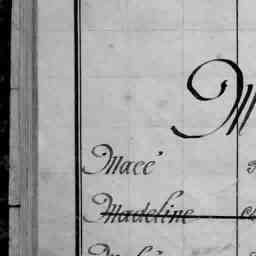 M
Macé
Madeline